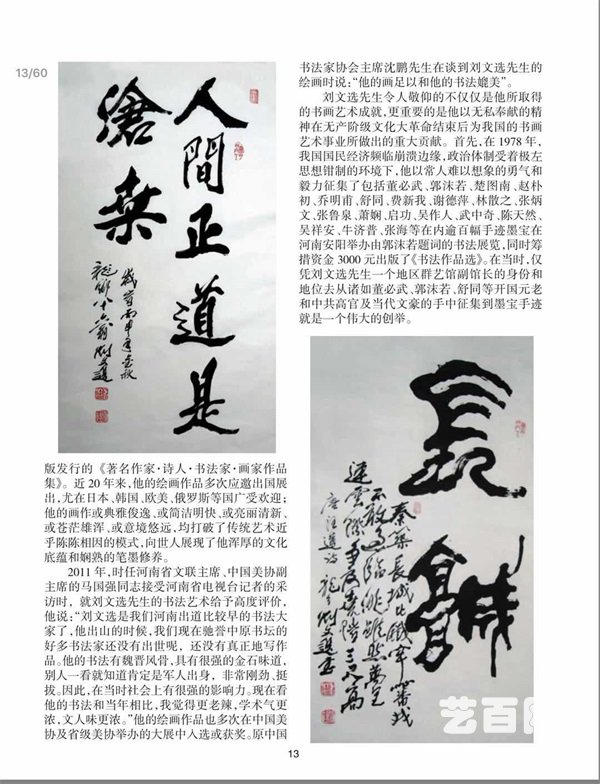 13/60
人間正道是
滄桑
歲首丙申年金秋
龍鄉八十六翁劉文選
版发行的《著名作家·诗人·书法家·画家作品
集》。近 20 年来，他的绘画作品多次应邀出国展
出，尤在日本、韩国、欧美、俄罗斯等国广受欢迎；
他的画作或典雅俊逸、或简洁明快、或亮丽清新、
或苍茫雄浑、或意境悠远，均打破了传统艺术近
乎陈陈相因的模式，向世人展现了他浑厚的文化
底蕴和娴熟的笔墨修养。
2011 年，时任河南省文联主席、中国美协副
主席的马国强同志接受河南省电视台记者的采
访时，就刘文选先生的书法艺术给予高度评价，
他说：“刘文选是我们河南出道比较早的书法大
家了，他出山的时候，我们现在驰誉中原书坛的
好多书法家还没有出世呢，还没有真正地写作
品。他的书法有魏晋风骨，具有很强的金石味道，
别人一看就知道肯定是军人出身，非常刚劲、挺
拔。因此，在当时社会上有很强的影响力。现在看
他的书法和当年相比，我觉得更老辣，学术气更
浓，文人味更浓。”他的绘画作品也多次在中国美
协及省级美协举办的大展中入选或获奖。原中国
书法家协会主席沈鹏先生在谈到刘文选先生的
绘画时说：“他的画足以和他的书法媲美”。
刘文选先生令人敬仰的不仅仅是他所取得
的书画艺术成就，更重要的是他以无私奉献的精
神在无产阶级文化大革命结束后为我国的书画
艺术事业所做出的重大贡献。首先，在 1978 年，
我国国民经济频临崩溃边缘，政治体制受着极左
思想钳制的环境下，他以常人难以想象的勇气和
毅力征集了包括董必武、郭沫若、楚图南、赵朴
初、乔明甫、舒同、费新我、谢德萍、林散之、张炳
文、张鲁泉、萧娴、启功、吴作人、武中奇、陈天然、
吴祥安、牛济普、张海等在内逾百幅手迹墨宝在
河南安阳举办由郭沫若题词的书法展览，同时筹
措资金 3000 元出版了《书法作品选》。在当时，仅
凭刘文选先生一个地区群艺馆副馆长的身份和
地位去从诸如董必武、郭沫若、舒同等开国元老
和中共高官及当代文豪的手中征集到墨宝手迹
就是一个伟大的创举。
長
城
秦築長城比鐵牢蕃戎
不敢過臨洮雖然萬里
連雲際爭及堯階三尺高
唐汪遵詩
艺百
13